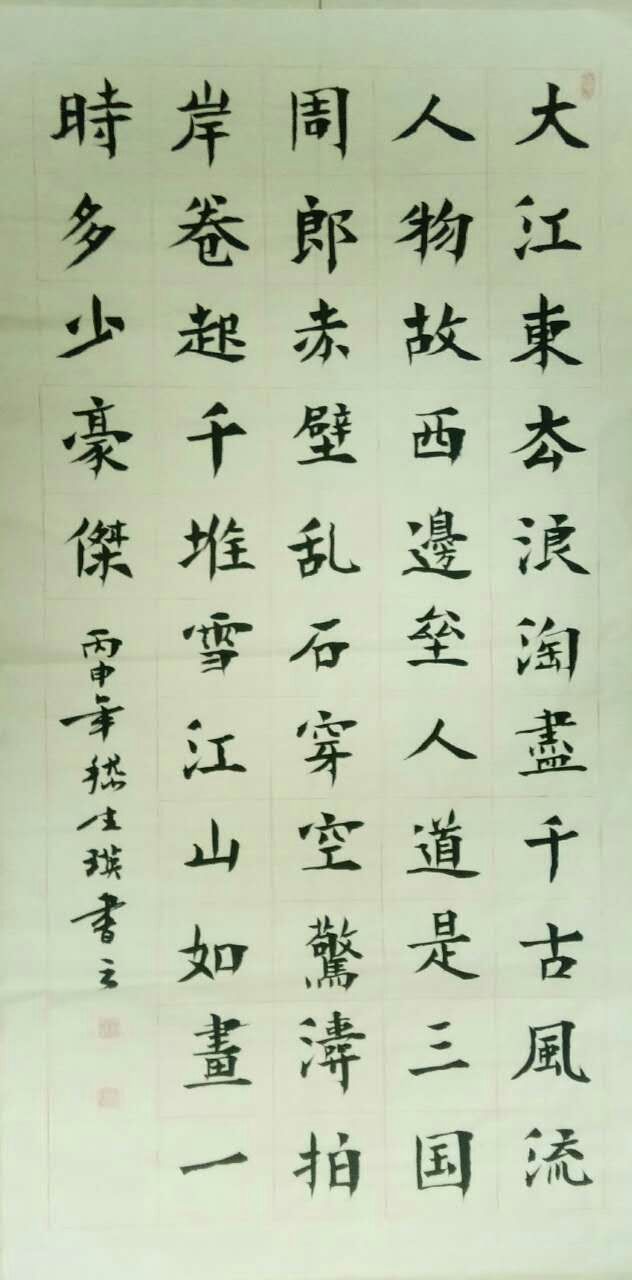 大江東去浪淘盡千古風流
人物故西邊壘人道是三国
周郎赤壁乱石穿空驚濤拍
岸卷起千堆雪江山如畫一
時多少豪傑
丙申年 生瑛書云